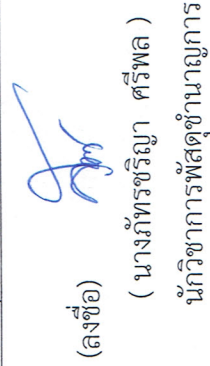 (ลงชื่อ)
( นางภัทรชริญา ศรีพล )
นักวิชาการพัสดุชำนาญการ